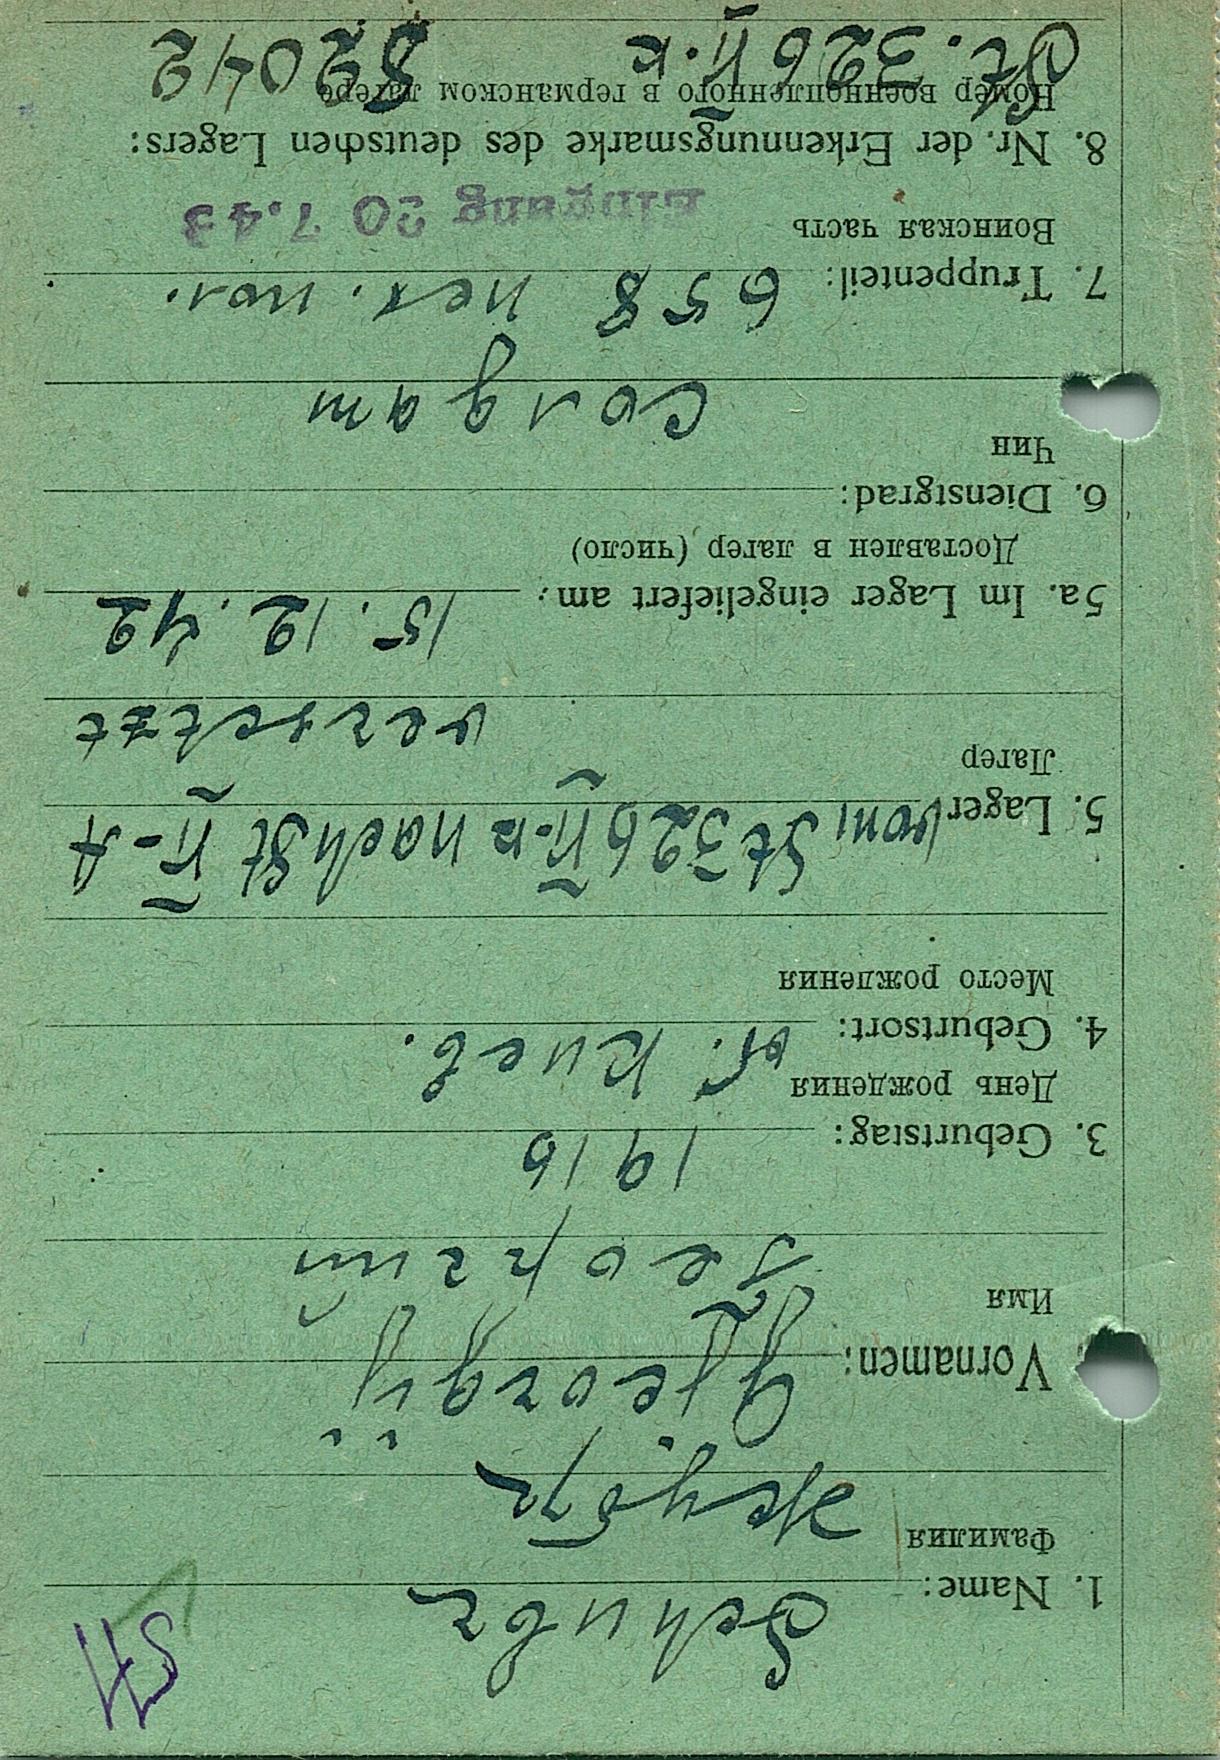 SH
1. Name: Schubr
Фамилия
Жубр
Vornamen: Georgij
Имя
Георгий
3. Geburtstag: 1916
День рождения
4. Geburtsort: Киев.
Место рождения
5. Lager vom St 326 VI-K nach St VI-A
Лагер
versetzt
5a. Im Lager eingeliefert am: 15.12.42
Доставлен в лагер (число)
6. Dienstgrad:
Чин
Солдат
7. Truppenteil: 658
Воинская часть
Eingang 20 7.43
8. Nr. der Erkennungsmarke des deutschen Lagers:
Номер военнопленного в германском лагере
St. 326 VI.K 52042